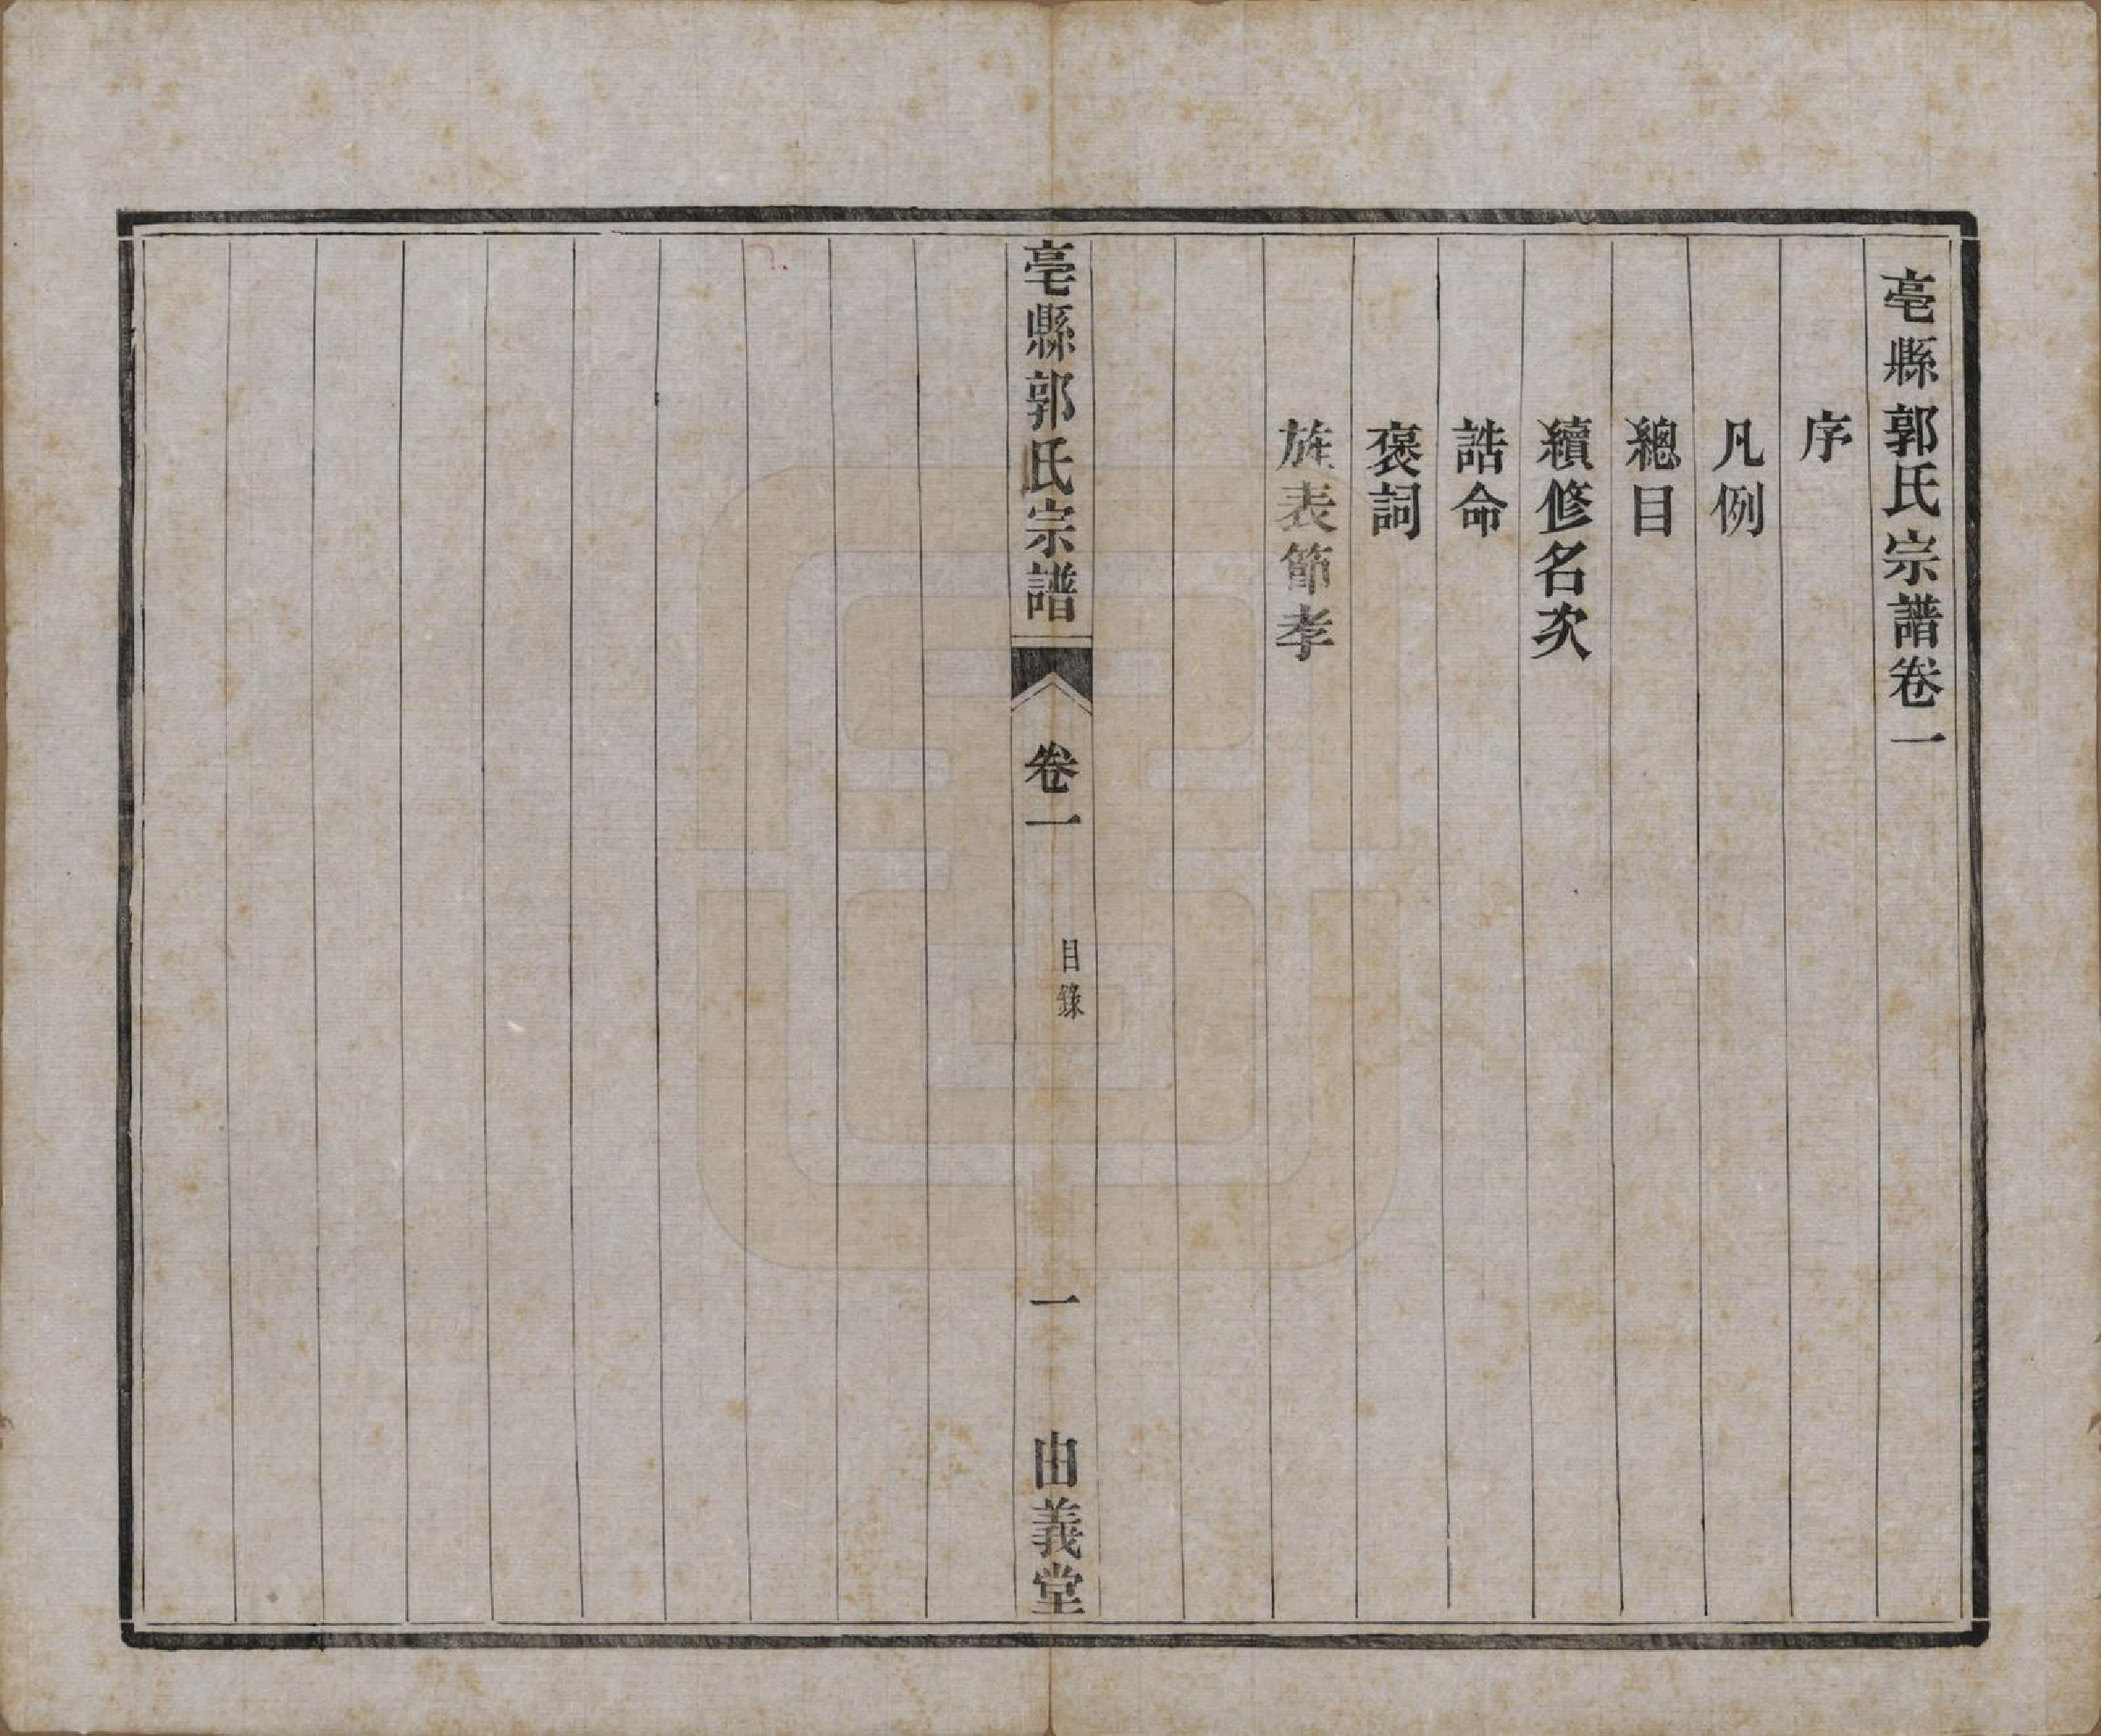 亳縣郭氏宗譜卷一
序
凡例
總目
續修名次
誥命
褒詞
旌表節孝
亳縣郭氏宗譜 卷一 目錄 一 由義堂